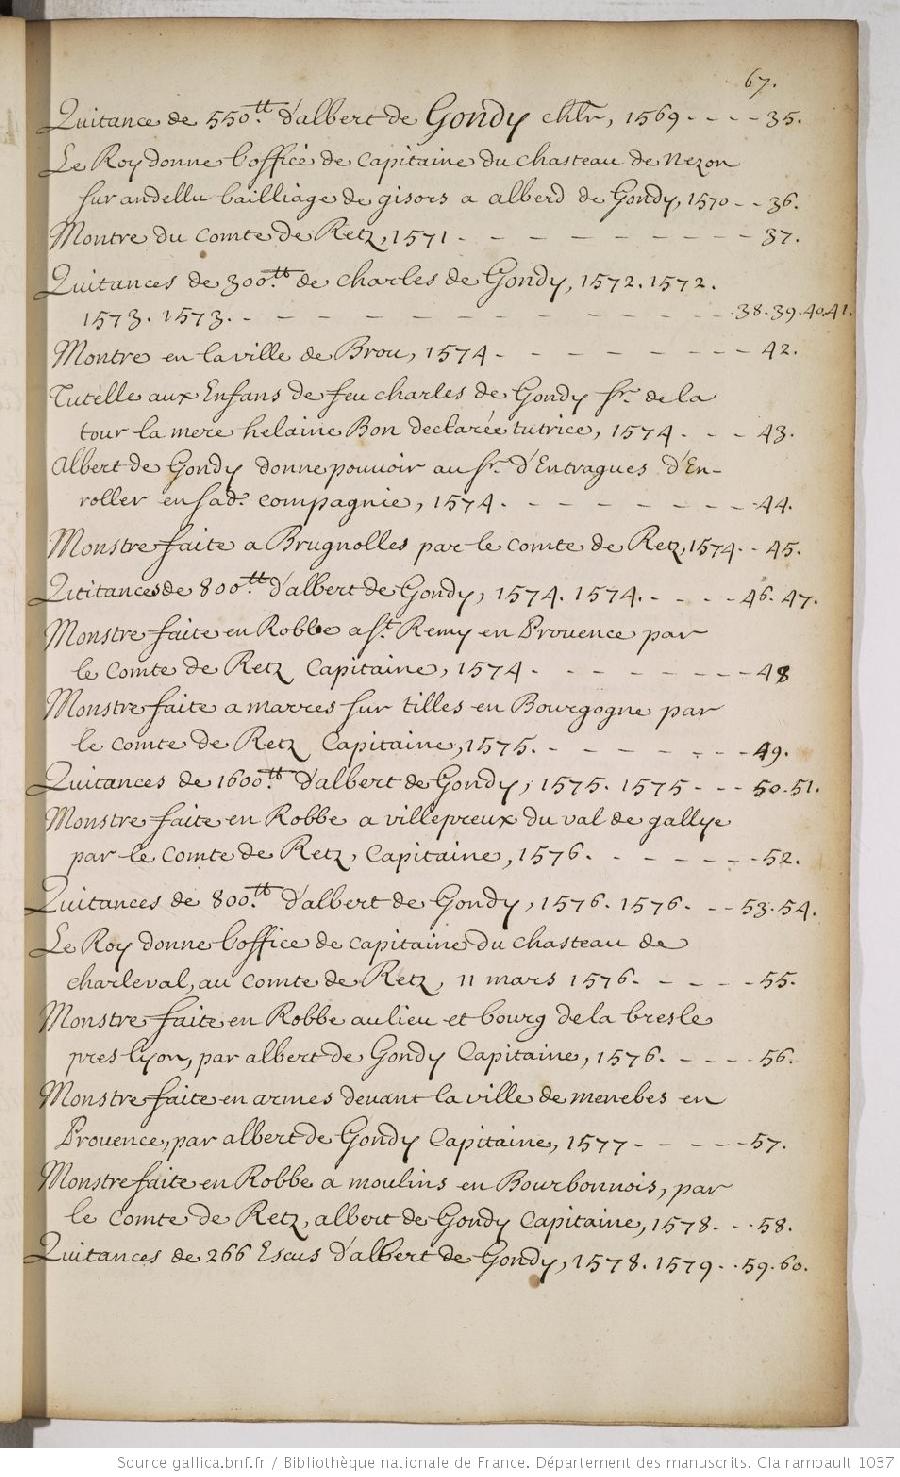 67.
Quitance de 550.tt d'albert de Gondy chlr, 1569 - - - - 35.
Le Roy donne l'office de Capitaine du chasteau de Nezon
sur andellu bailliage de gisors a alberd de Gondy, 1570 - - 36.
Montre du Comte de Retz, 1571 - - - - - - - - - 37.
Quitances de 300.tt de charles de Gondy, 1572. 1572.
1573. 1573. - - - - - - - - - - - - 38. 39. 40. 41.
Montre en la ville de Brou, 1574 - - - - - - - - 42.
Tutelle aux Enfans de feu charles de Gondy sr. de la
tour la mere helaine Bon declarée tutrice, 1574 - - - 43.
Albert de Gondy donne pouvoir au sr. d'Entragues d'En-
roller en sad.e compagnie, 1574. - - - - - - - 44.
Monstre faite a Brugnolles par le comte de Retz, 1574. - - 45.
Quitances de 800.tt d'albert de Gondy, 1574. 1574. - - - - 46. 47.
Monstre faite en Robbe a st. Remy en Prouence par
le Comte de Retz Capitaine, 1574 - - - - - - - 48
Monstre faite a marres sur tilles en Bourgogne par
le Comte de Retz Capitaine, 1575. - - - - - - - 49.
Quitances de 1600.tt d'albert de Gondy, 1575. 1575 - - - 50. 51.
Monstre faite en Robbe a villepreux du val de gallye
par le Comte de Retz, Capitaine, 1576. - - - - - - 52.
Quitances de 800.tt d'albert de Gondy, 1576. 1576. - - 53. 54.
Le Roy donne l'office de capitaine du chasteau de
charleval, au Comte de Retz, 11 mars 1576. - - - - 55.
Monstre faite en Robbe au lieu et bourg de la bresle
pres lyon, par albert de Gondy Capitaine, 1576. - - - - 56.
Monstre faite en armes deuant la ville de menebes en
Prouence, par albert de Gondy Capitaine, 1577 - - - - - 57.
Monstre faite en Robbe a moulins en Bourbonnois, par
le Comte de Retz, albert de Gondy Capitaine, 1578. - - 58.
Quitances de 266 Escus d'albert de Gondy, 1578. 1579 - - 59. 60.
Source gallica.bnf.fr / Bibliothèque nationale de France. Département des manuscrits. Clairambault 1037